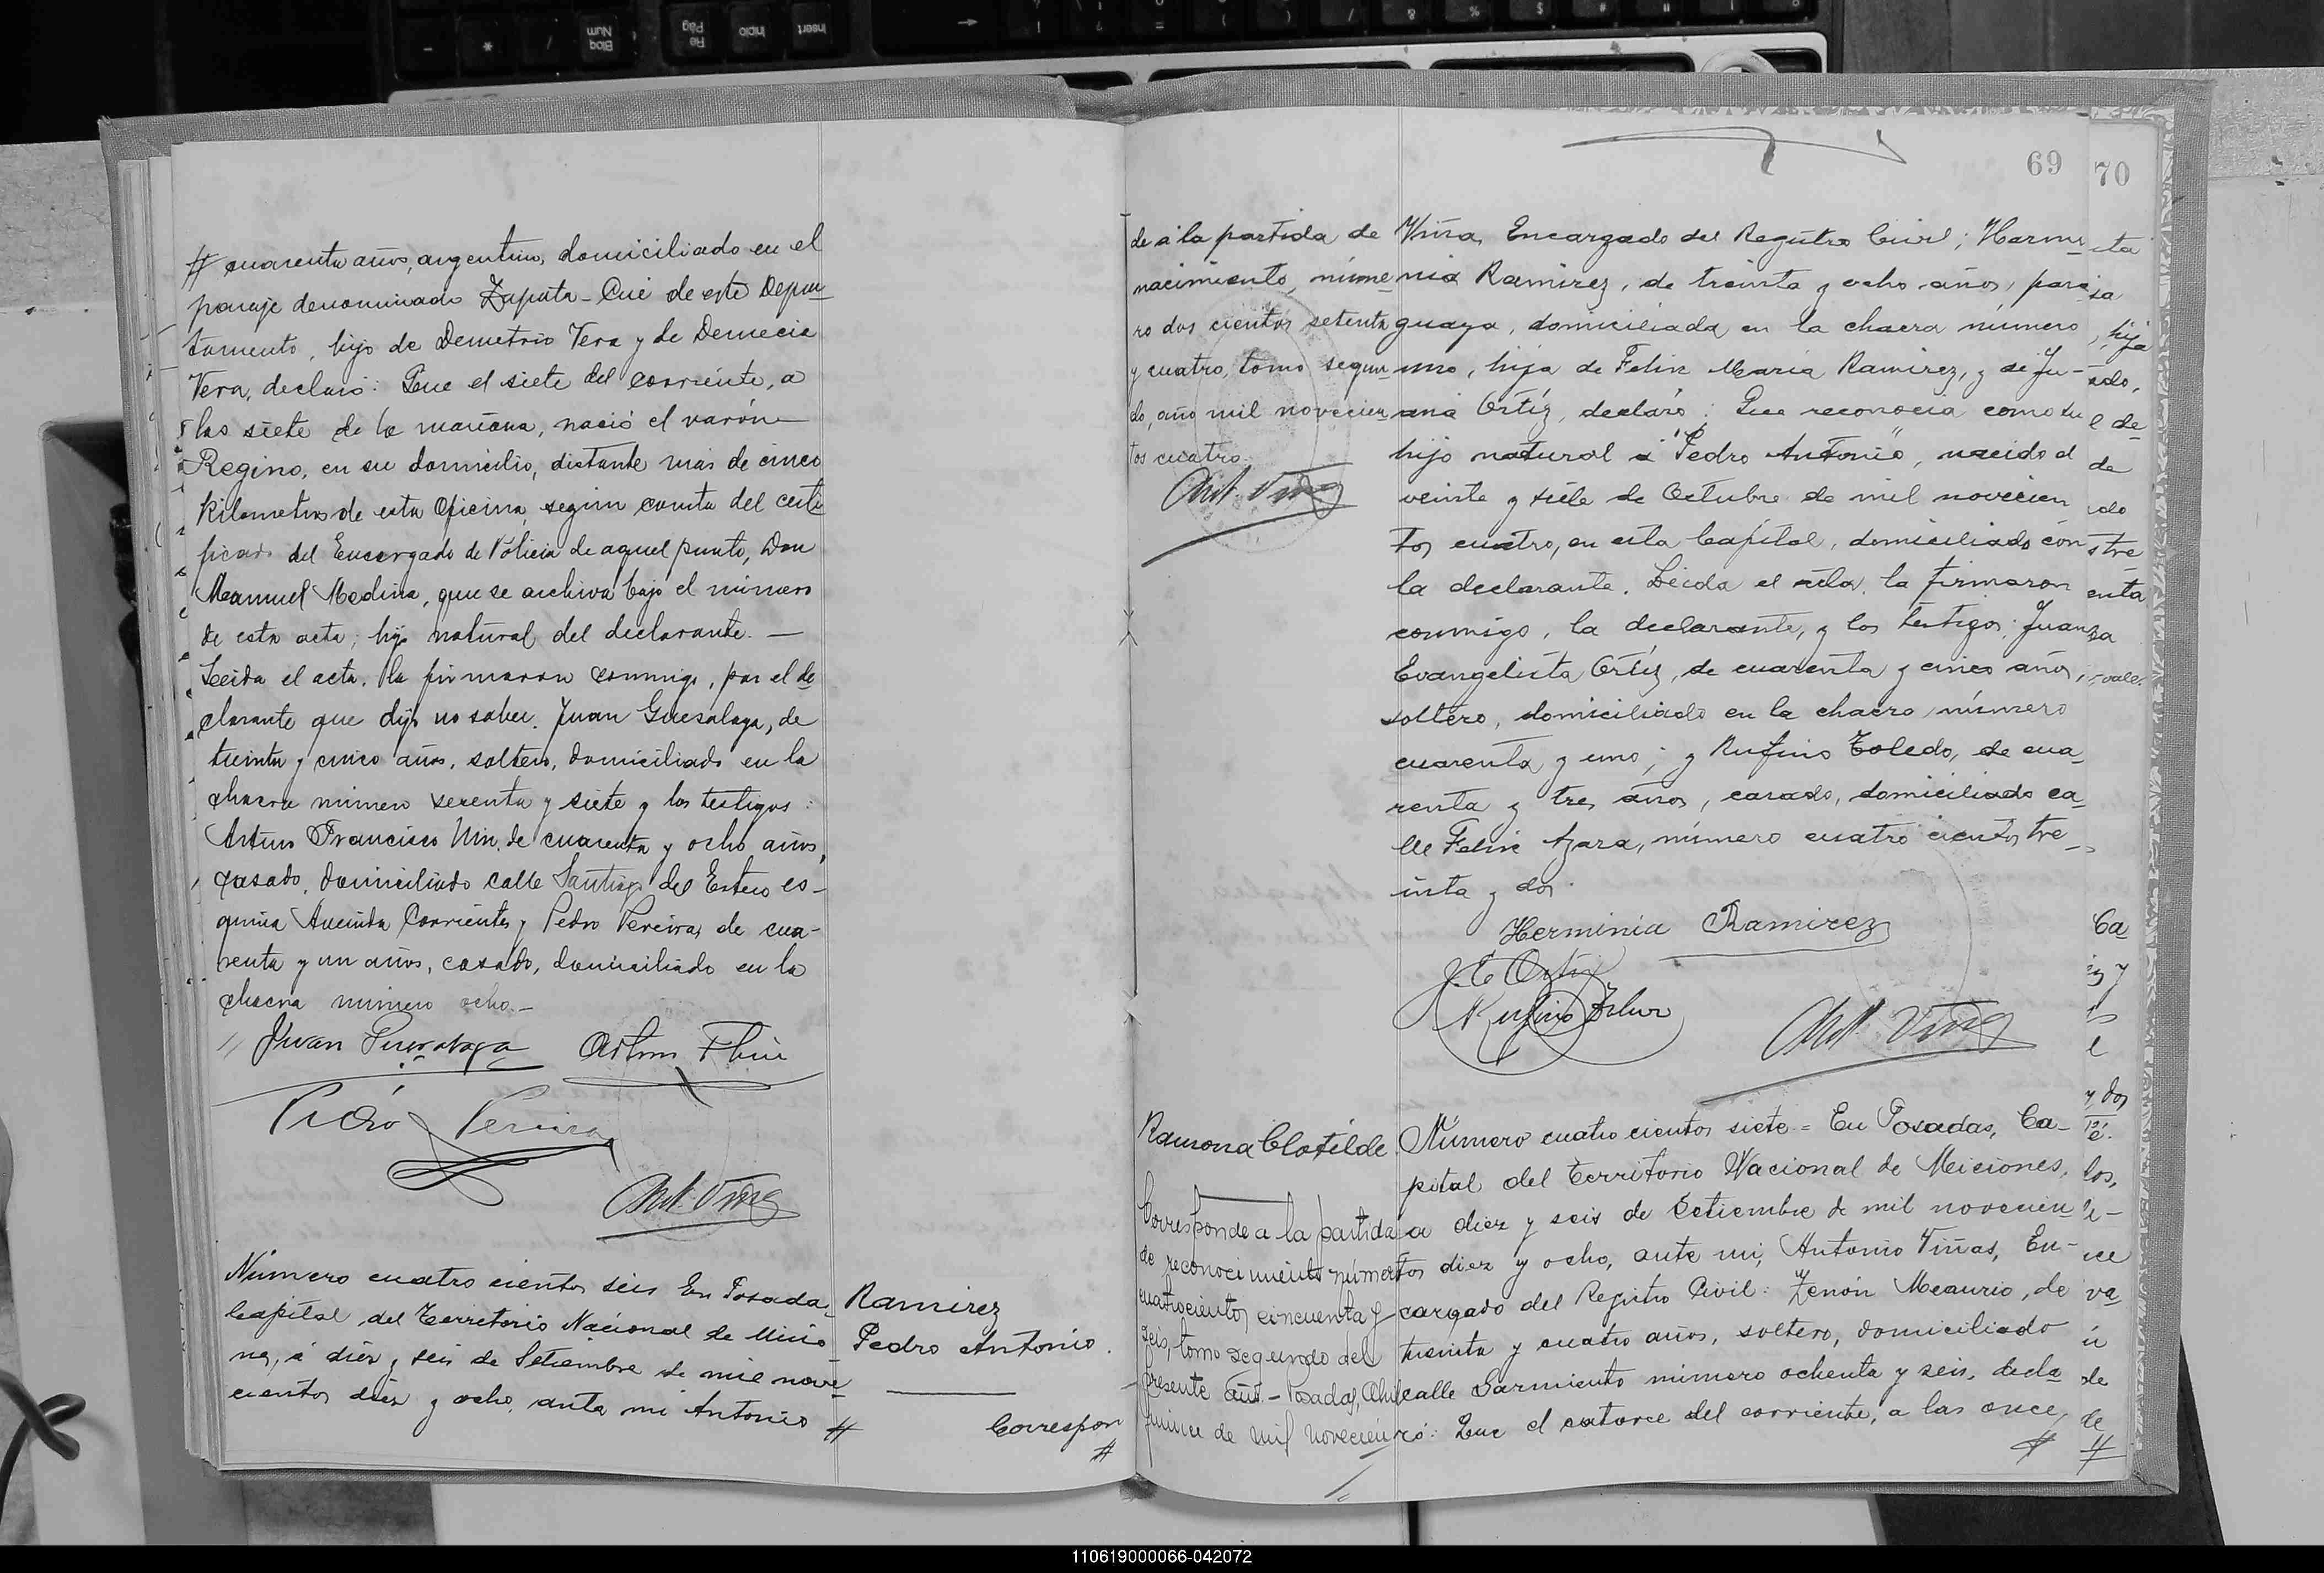 # cuarenta años, argentino, domiciliado en el
paraje denominado Zapata-Cué de este Depar
tamento, hijo de Demetrio Vera y de Demecia
Vera, declaró: Que el siete del corriente, a
las siete de la mañana, nació el varón
Regino, en su domicilio, distante más de cinco
Kilometros de esta Oficina, según consta del certi
ficado del Encargado de Policia de aquel punto, Don
Manuel Medina, que se archiva bajo el número
de esta acta; hijo natural del declarante. —
Leida el acta, la firmaron conmigo, por el de
clarante que dijo no saber, Juan Guesalaga, de
treinta y cinco años, soltero, domiciliado en la
chacra número sesenta y siete y los testigos:
Arturo Francisco de cuarenta y ocho años,
casado, domiciliado calle Santiago del Estero es-
quina Avenida Corrientes y Pedro Pereira, de cua-
renta y un años, casado, domiciliado en la
chacra número ocho.—
Juan Guesalaga
Pedro Pereira
Ant. Viñas
Número cuatro cientos seis En Posadas,
Capital, del Territorio Nacional de Misio
nes, á diez y seis de Setiembre de mil nove
cientos diez y ocho, ante mi Antonio #
Ramirez
Pedro Antonio.
Correspon
#
69
70
de á la partida de
nacimiento, núme
ro dos cientos setenta
y cuatro, tomo segun
do, año mil novecien
tos cuatro.
Ant. Viñas
Viñas, Encargado del Registro Civil; Hermi
nia Ramirez, de treinta y ocho años, para
guaya, domiciliada en la chacra número
uno, hija de Felix Maria Ramirez, y de Ju-
ana Ortíz, declaró: Que reconocia como su
hijo natural á "Pedro Antonio", nacido el
veinte y siete de Octubre de mil novecien
tos cuatro, en esta Capital, domiciliado con
la declarante. Leida el acta, la firmaron
conmigo, la declarante, y los testigos: Juan
Evangelista Ortíz, de cuarenta y cinco años,
soltero, domiciliado en la chacra número
cuarenta y uno; y Rufino Toledo, de cua
renta y tres años, casado, domiciliado ca
lle Felix Azara, número cuatro cientos tre
inta y dos.
Herminia Ramirez
J. E Ortiz
Ant. Viñas
Ramona Clotilde
Corresponde a la partida
de reconocimiento número
cuatrocientos cincuenta y
seis, tomo segundo del
presente año.- Posadas,
quince de mil novecien
Número cuatro cientos siete = En Posadas, Ca-
pital del Territorio Nacional de Misiones,
a diez y seis de Setiembre de mil novecien
tos diez y ocho, ante mi, Antonio Viñas, En-
cargado del Registro Civil: Zenón Meaurio, de
treinta y cuatro años, soltero, domiciliado
calle Sarmiento número ochenta y seis, decla
ró: Que el catorce del corriente, a las once,
#
110619000066-042072